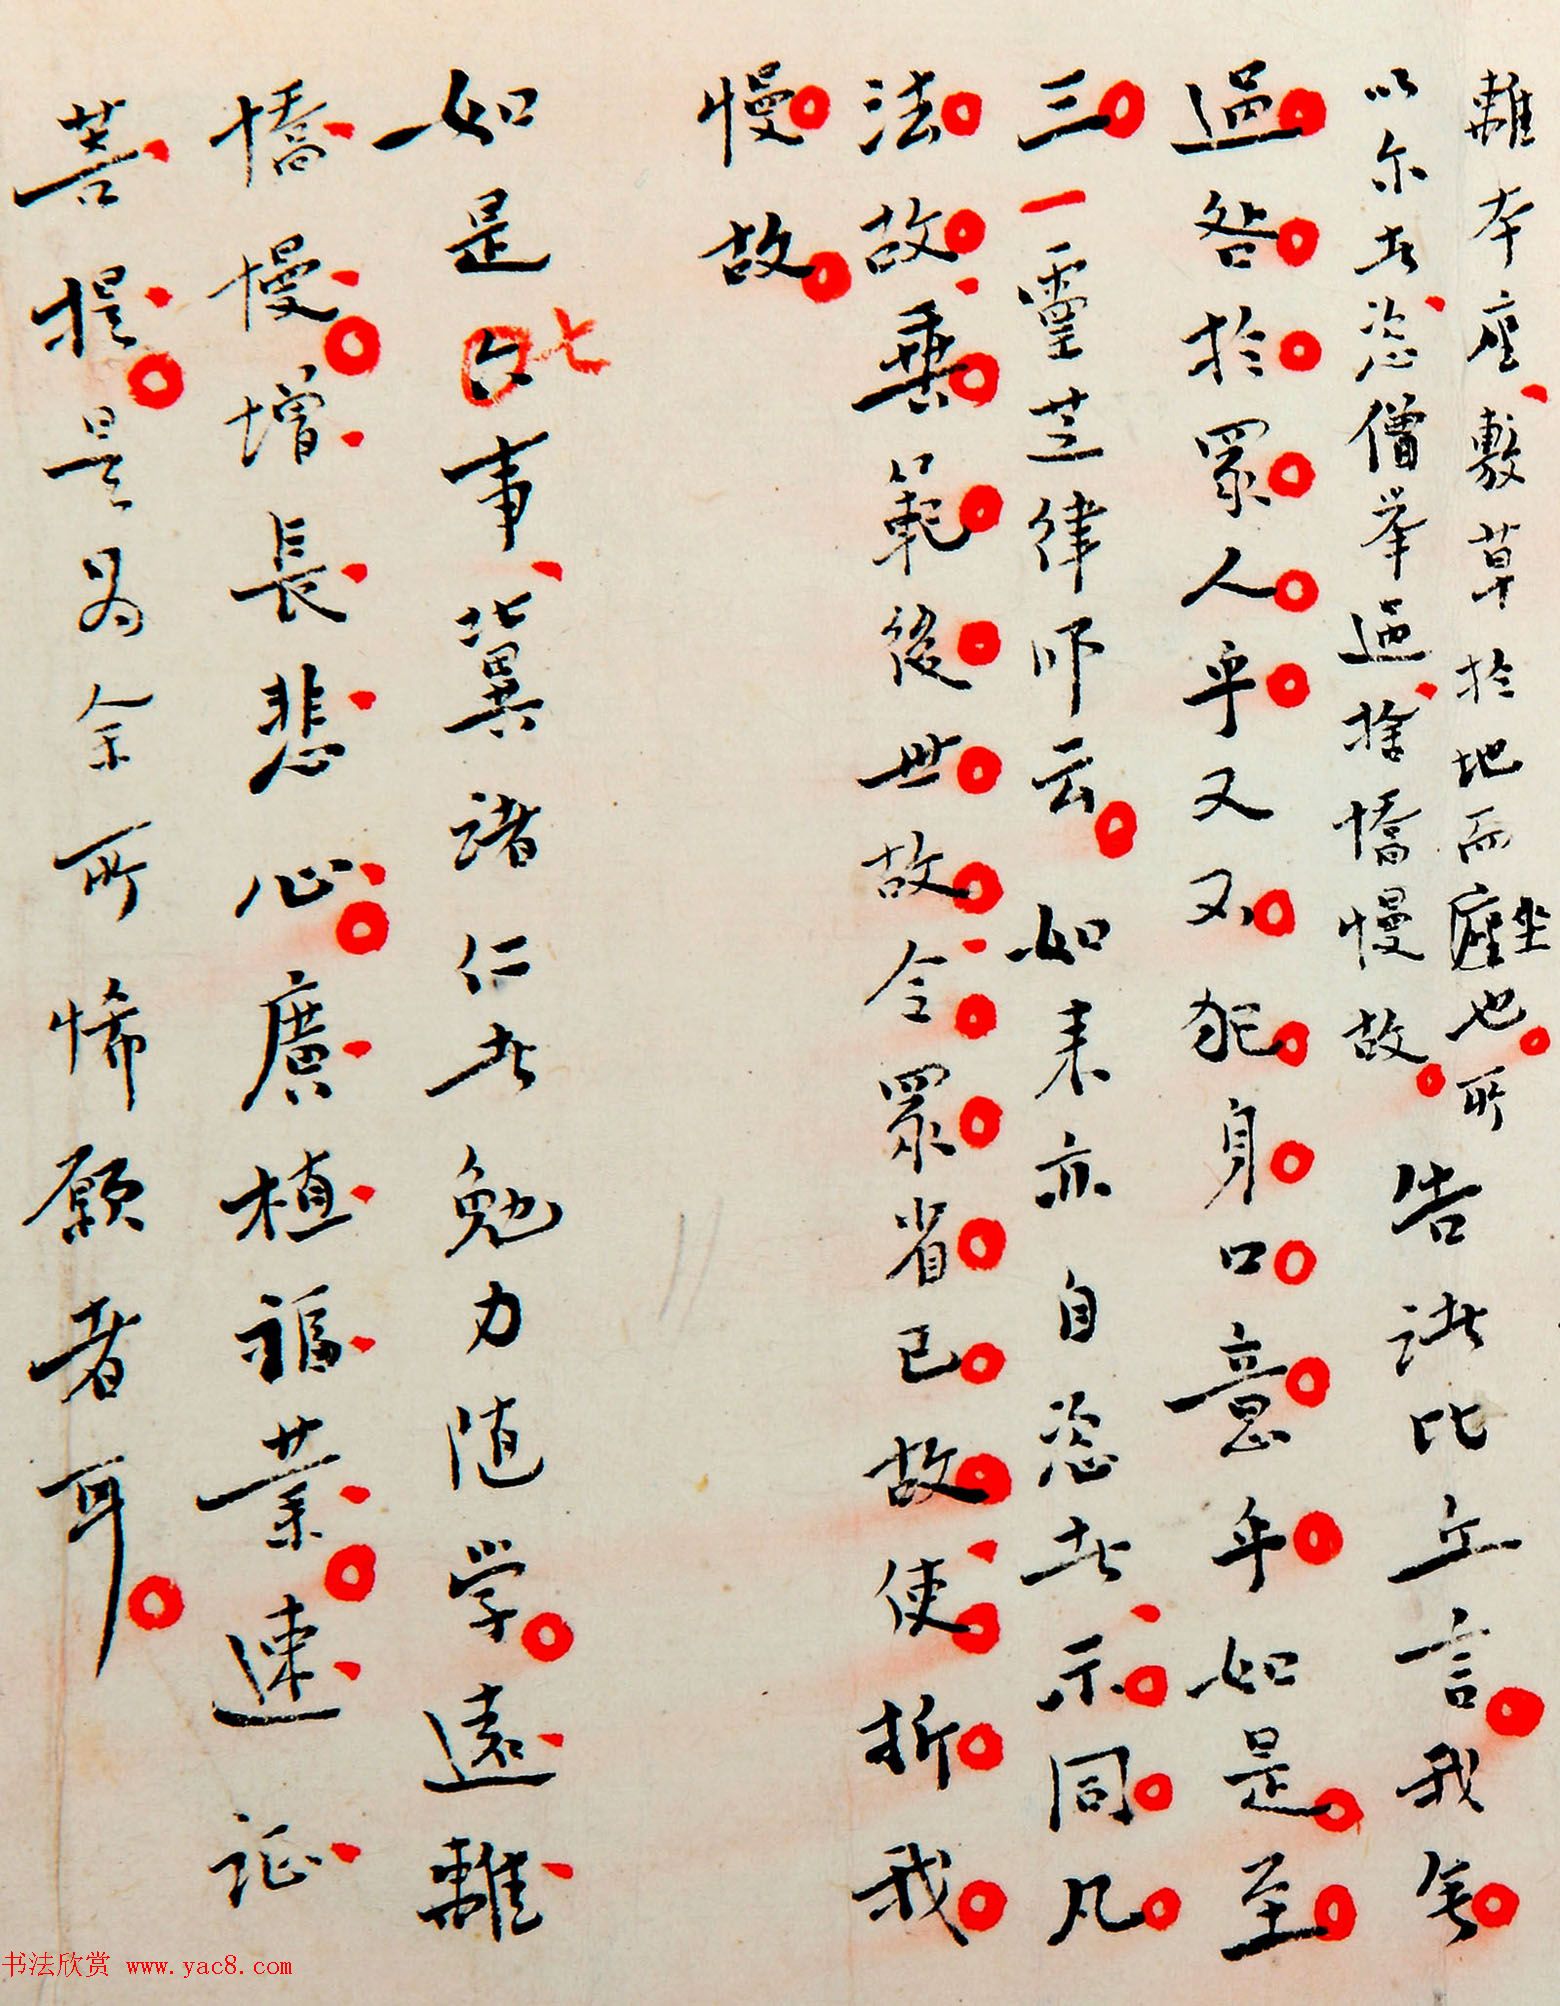 離本座、敷草於地而座坐也。所
以尔者、恣僧举過、捨憍慢故。
告諸比丘言。我無
過咎於眾人乎又不犯身口意乎如是至
三一靈芝律师云。如来亦自恣者、示同凡
法故、垂範後世故、令眾省己故、使折我
慢故。
如是六七事、冀諸仁者勉力随学。遠離
憍慢。增長悲心。廣植福業。速証
菩提。是為余所悕願者耳。
书法欣赏 www.yac8.com